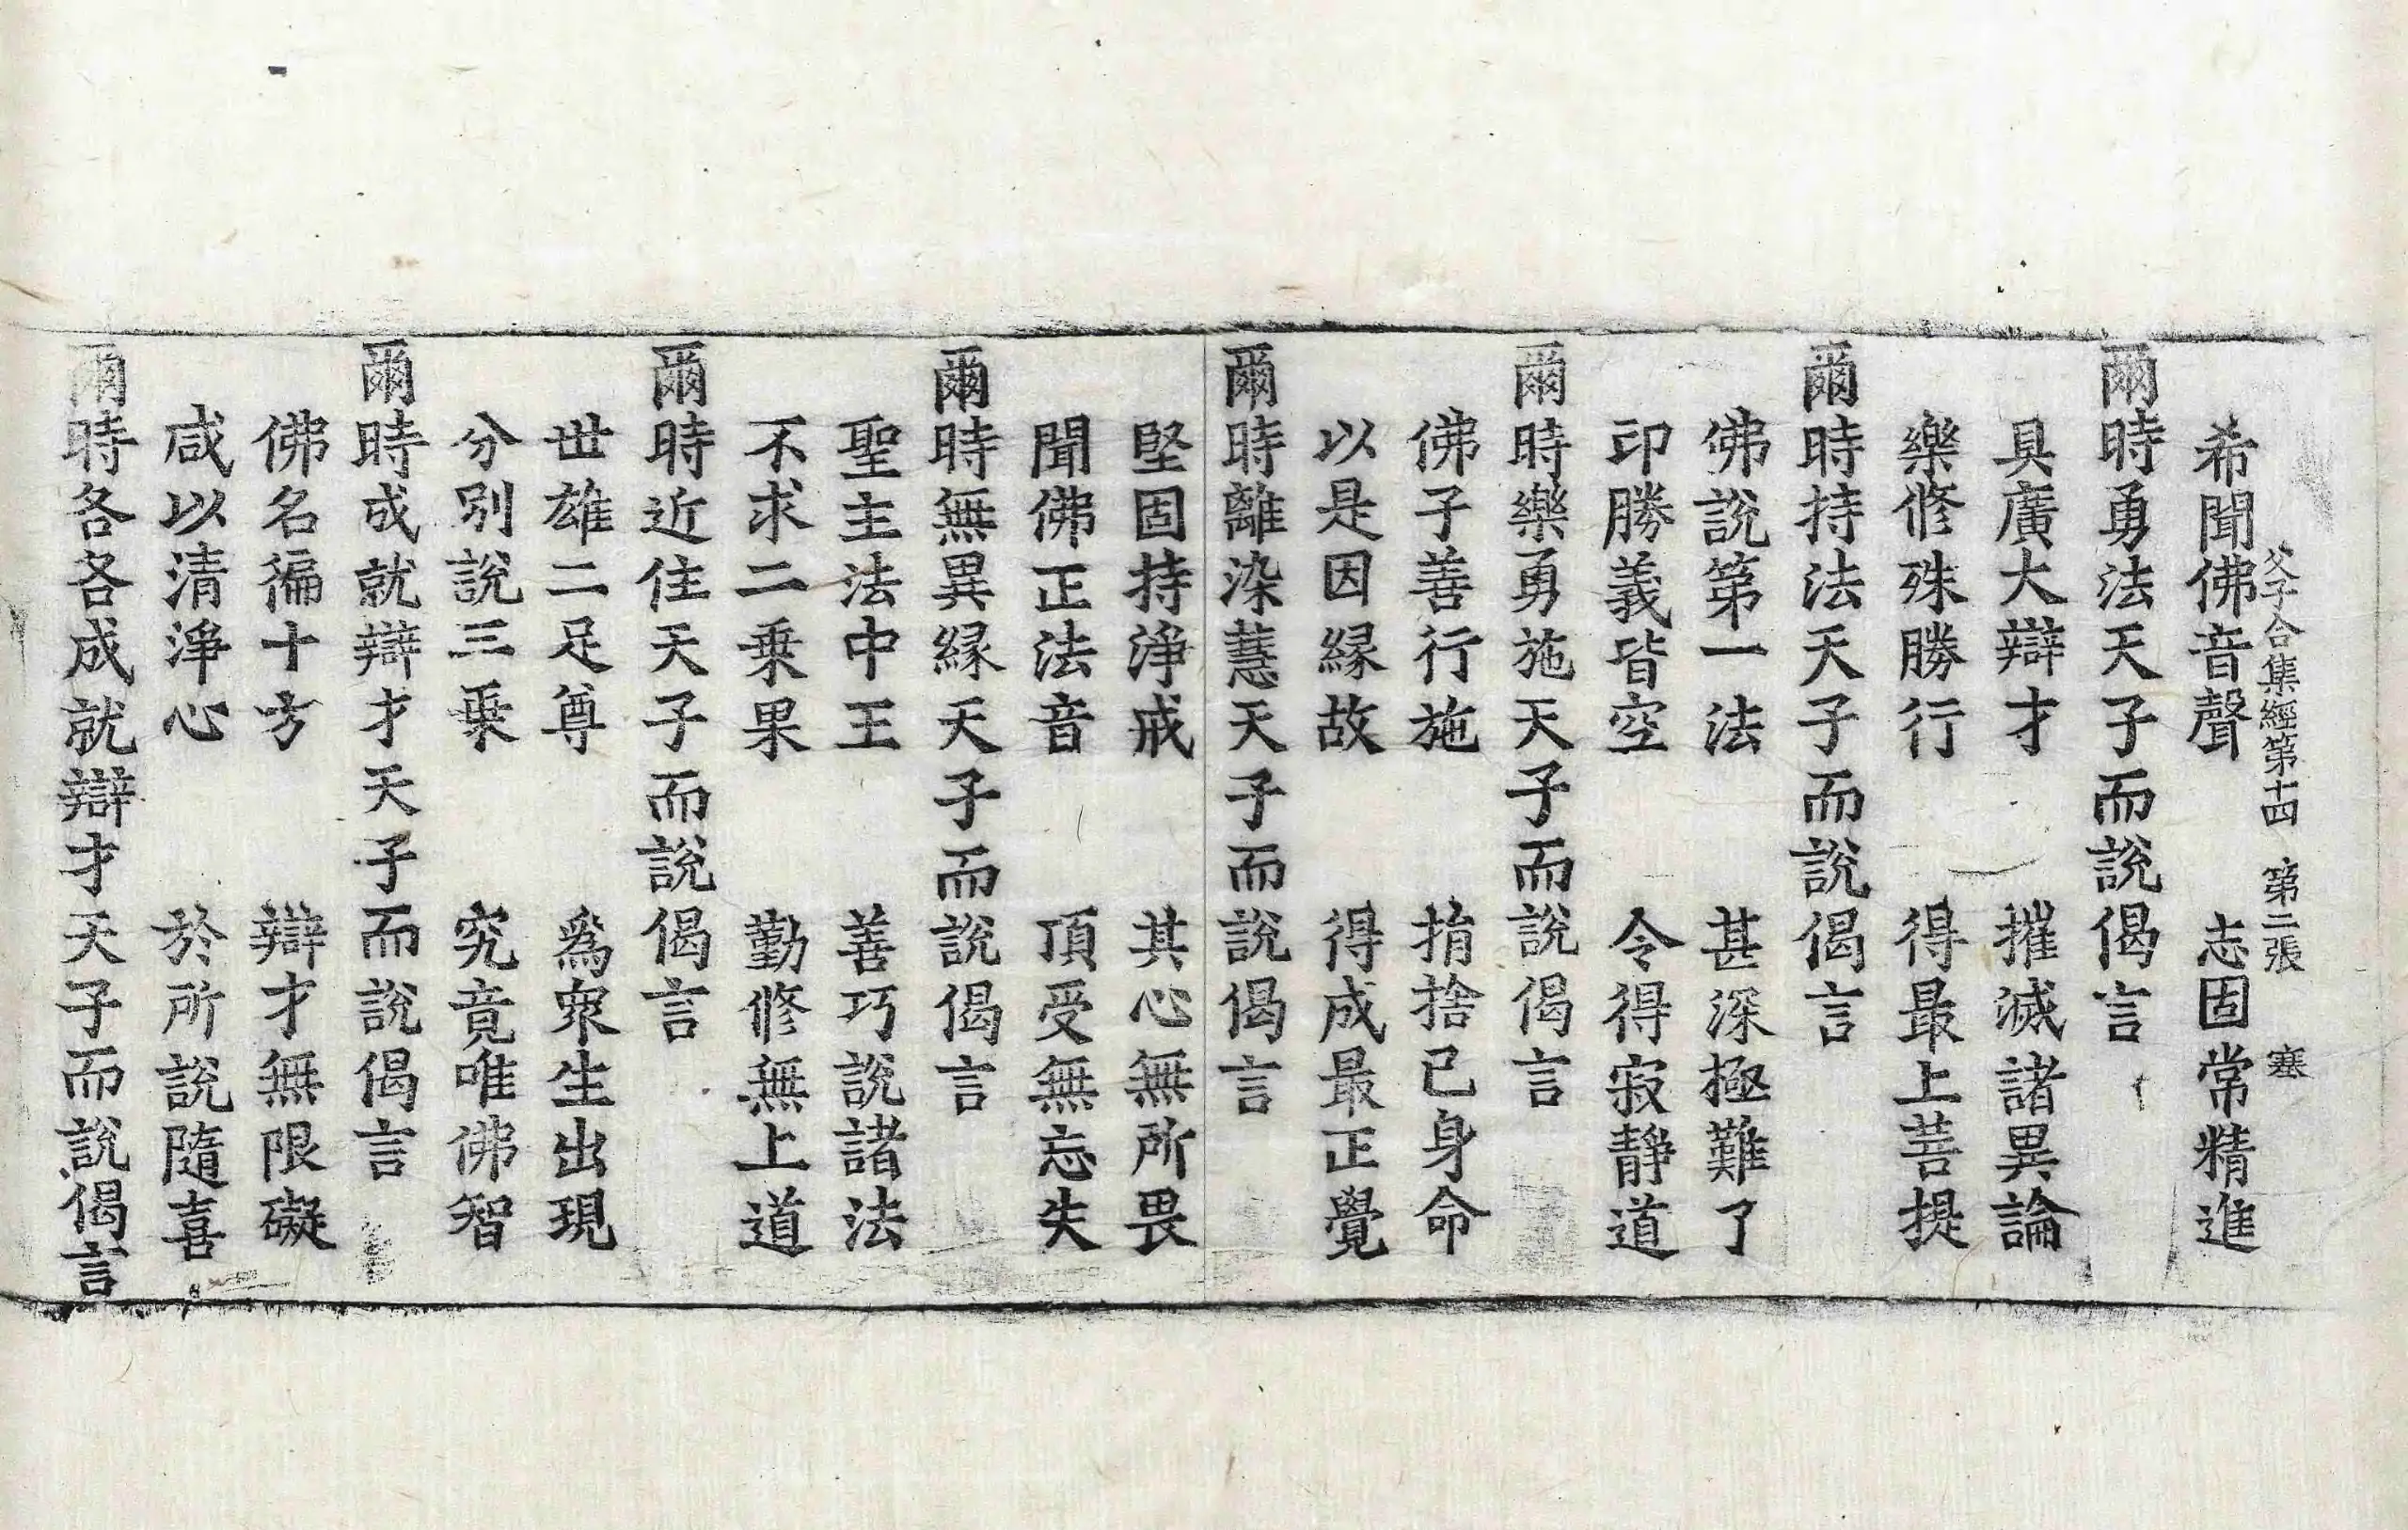 父子合集經第十四　第二張　寒
希聞佛音聲　志固常精進
爾時勇法天子而說偈言
具廣大辯才　摧滅諸異論
樂修殊勝行　得最上菩提
爾時持法天子而說偈言
佛說第一法　甚深極難了
印勝義皆空　令得寂靜道
爾時樂勇施天子而說偈言
佛子善行施　捐捨已身命
以是因緣故　得成最正覺
爾時離染慧天子而說偈言
堅固持淨戒　其心無所畏
聞佛正法音　頂受無忘失
爾時無異緣天子而說偈言
聖主法中王　善巧說諸法
不求二乘果　勤修無上道
爾時近住天子而說偈言
世雄二足尊　為衆生出現
分別說三乘　究竟唯佛智
爾時成就辯才天子而說偈言
佛名徧十方　辯才無限礙
咸以清淨心　於所說隨喜
爾時各各成就辯才天子而說偈言